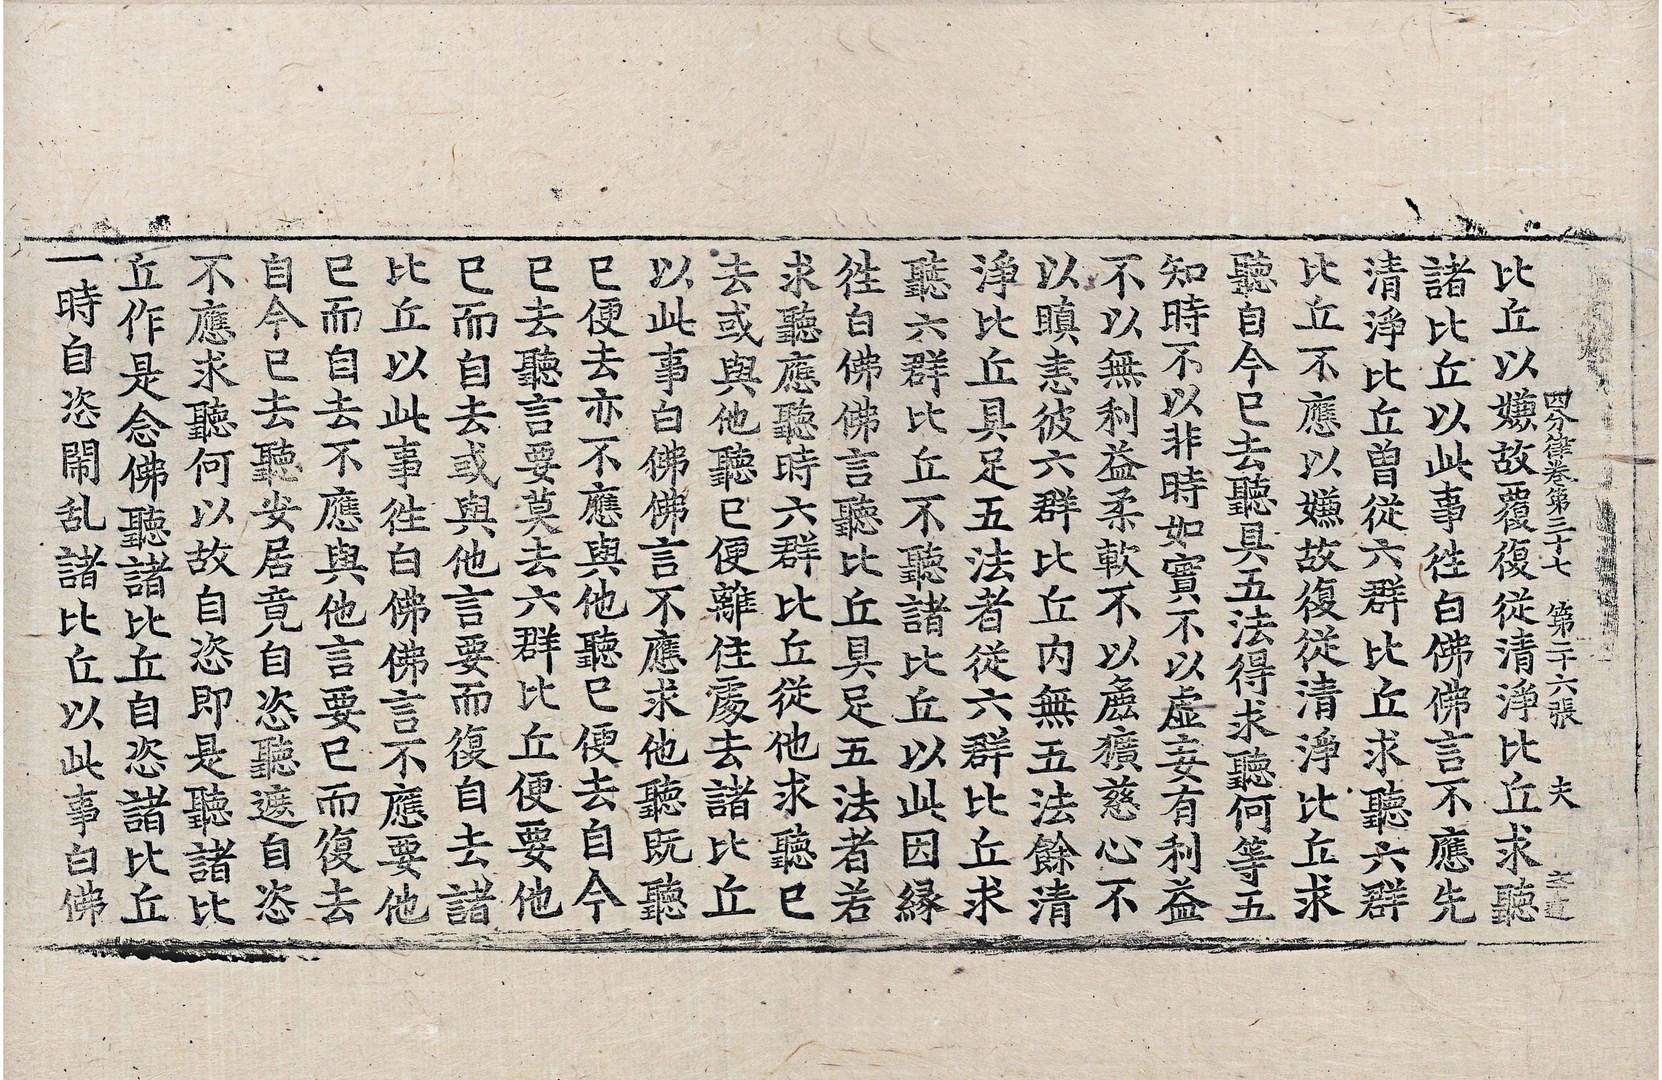 四分律卷第三十七　第二十六張　夫
比丘以嫌故覆復從清淨比丘求聽
諸比丘以此事徃白佛佛言不應先
清淨比丘曾從六群比丘求聽六群
比丘不應以嫌故復從清淨比丘求
聽自今已去聽具五法得求聽何等五
知時不以非時如實不以虛妄有利益
不以無利益柔軟不以麁獷慈心不
以瞋恚彼六群比丘内無五法餘清
淨比丘具足五法者從六群比丘求
聽六群比丘不聽諸比丘以此因縁
徃白佛佛言聽比丘具足五法者若
求聽應聽時六群比丘從他求聽已
去或與他聽已便離住處去諸比丘
以此事白佛佛言不應求他聽既聽
已便去亦不應與他聽已便去自今
已去聽言要莫去六群比丘便要他
已而自去或與他言要而復自去諸
比丘以此事徃白佛佛言不應要他
已而自去不應與他言要已而復去
自今已去聽安居竟自恣聽遮自恣
不應求聽何以故自恣即是聽諸比
丘作是念佛聽諸比丘自恣諸比丘
一時自恣閙乱諸比丘以此事白佛